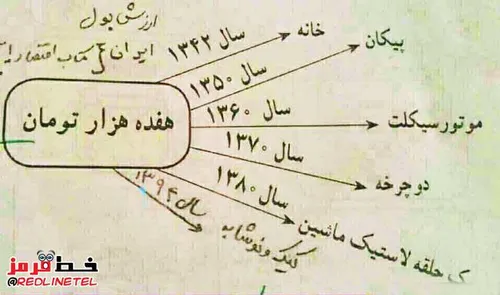 ارزش پول
ایران کتاب اقتصاد
هفده هزار تومان
سال ۱۳۴۲ خانه
سال ۱۳۵۰ پیکان
سال ۱۳۶۰ موتورسیکلت
سال ۱۳۷۰ دوچرخه
سال ۱۳۸۰ ک حلقه لاستیک ماشین
سال ۱۳۹۴ کیک و نوشابه
خط قرمز
@REDLINETEL